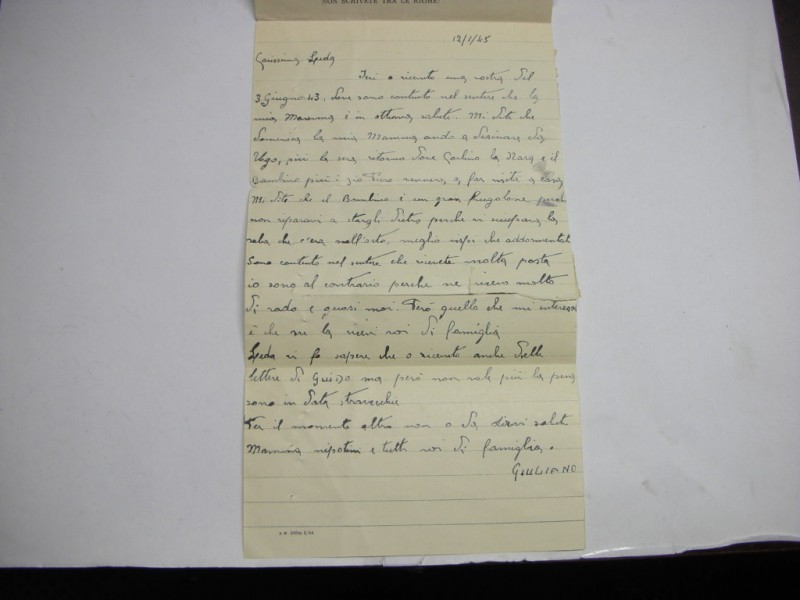 NON SCRIVETE TRA LE RIGHE!
12/1/45
Carissima Leda
Ieri o ricevuto una vostra del
3 Giugno 43, dove sono contento nel sentire che la
mia Mamma è in ottima salute. Mi dite che
Domenica la mia Mamma andò a desinare da
Ugo, più la sera ritornò dove la Mara e il
Bambino più i zio Piero vennero, a far visite a casa
Mi dite che il Bambino è un gran Ruzzolone
non a stargli dietro perche vi sciupava la
roba che c'era nell'orto, meglio
Sono contento nel sentire che ricevete molta posta
io sono al contrario perche ne ricevo molto
di rado e quasi mai. Però quello che mi interessa
è che me la voi di famiglia
Leda vi fo sapere che o ricevuto anche delle
lettere di ma però non vale più la pena
sono in data stravecchie
Per il momento altro non o da dirvi saluti
Mamma nipotini e tutti voi di famiglia.
GIULIANO